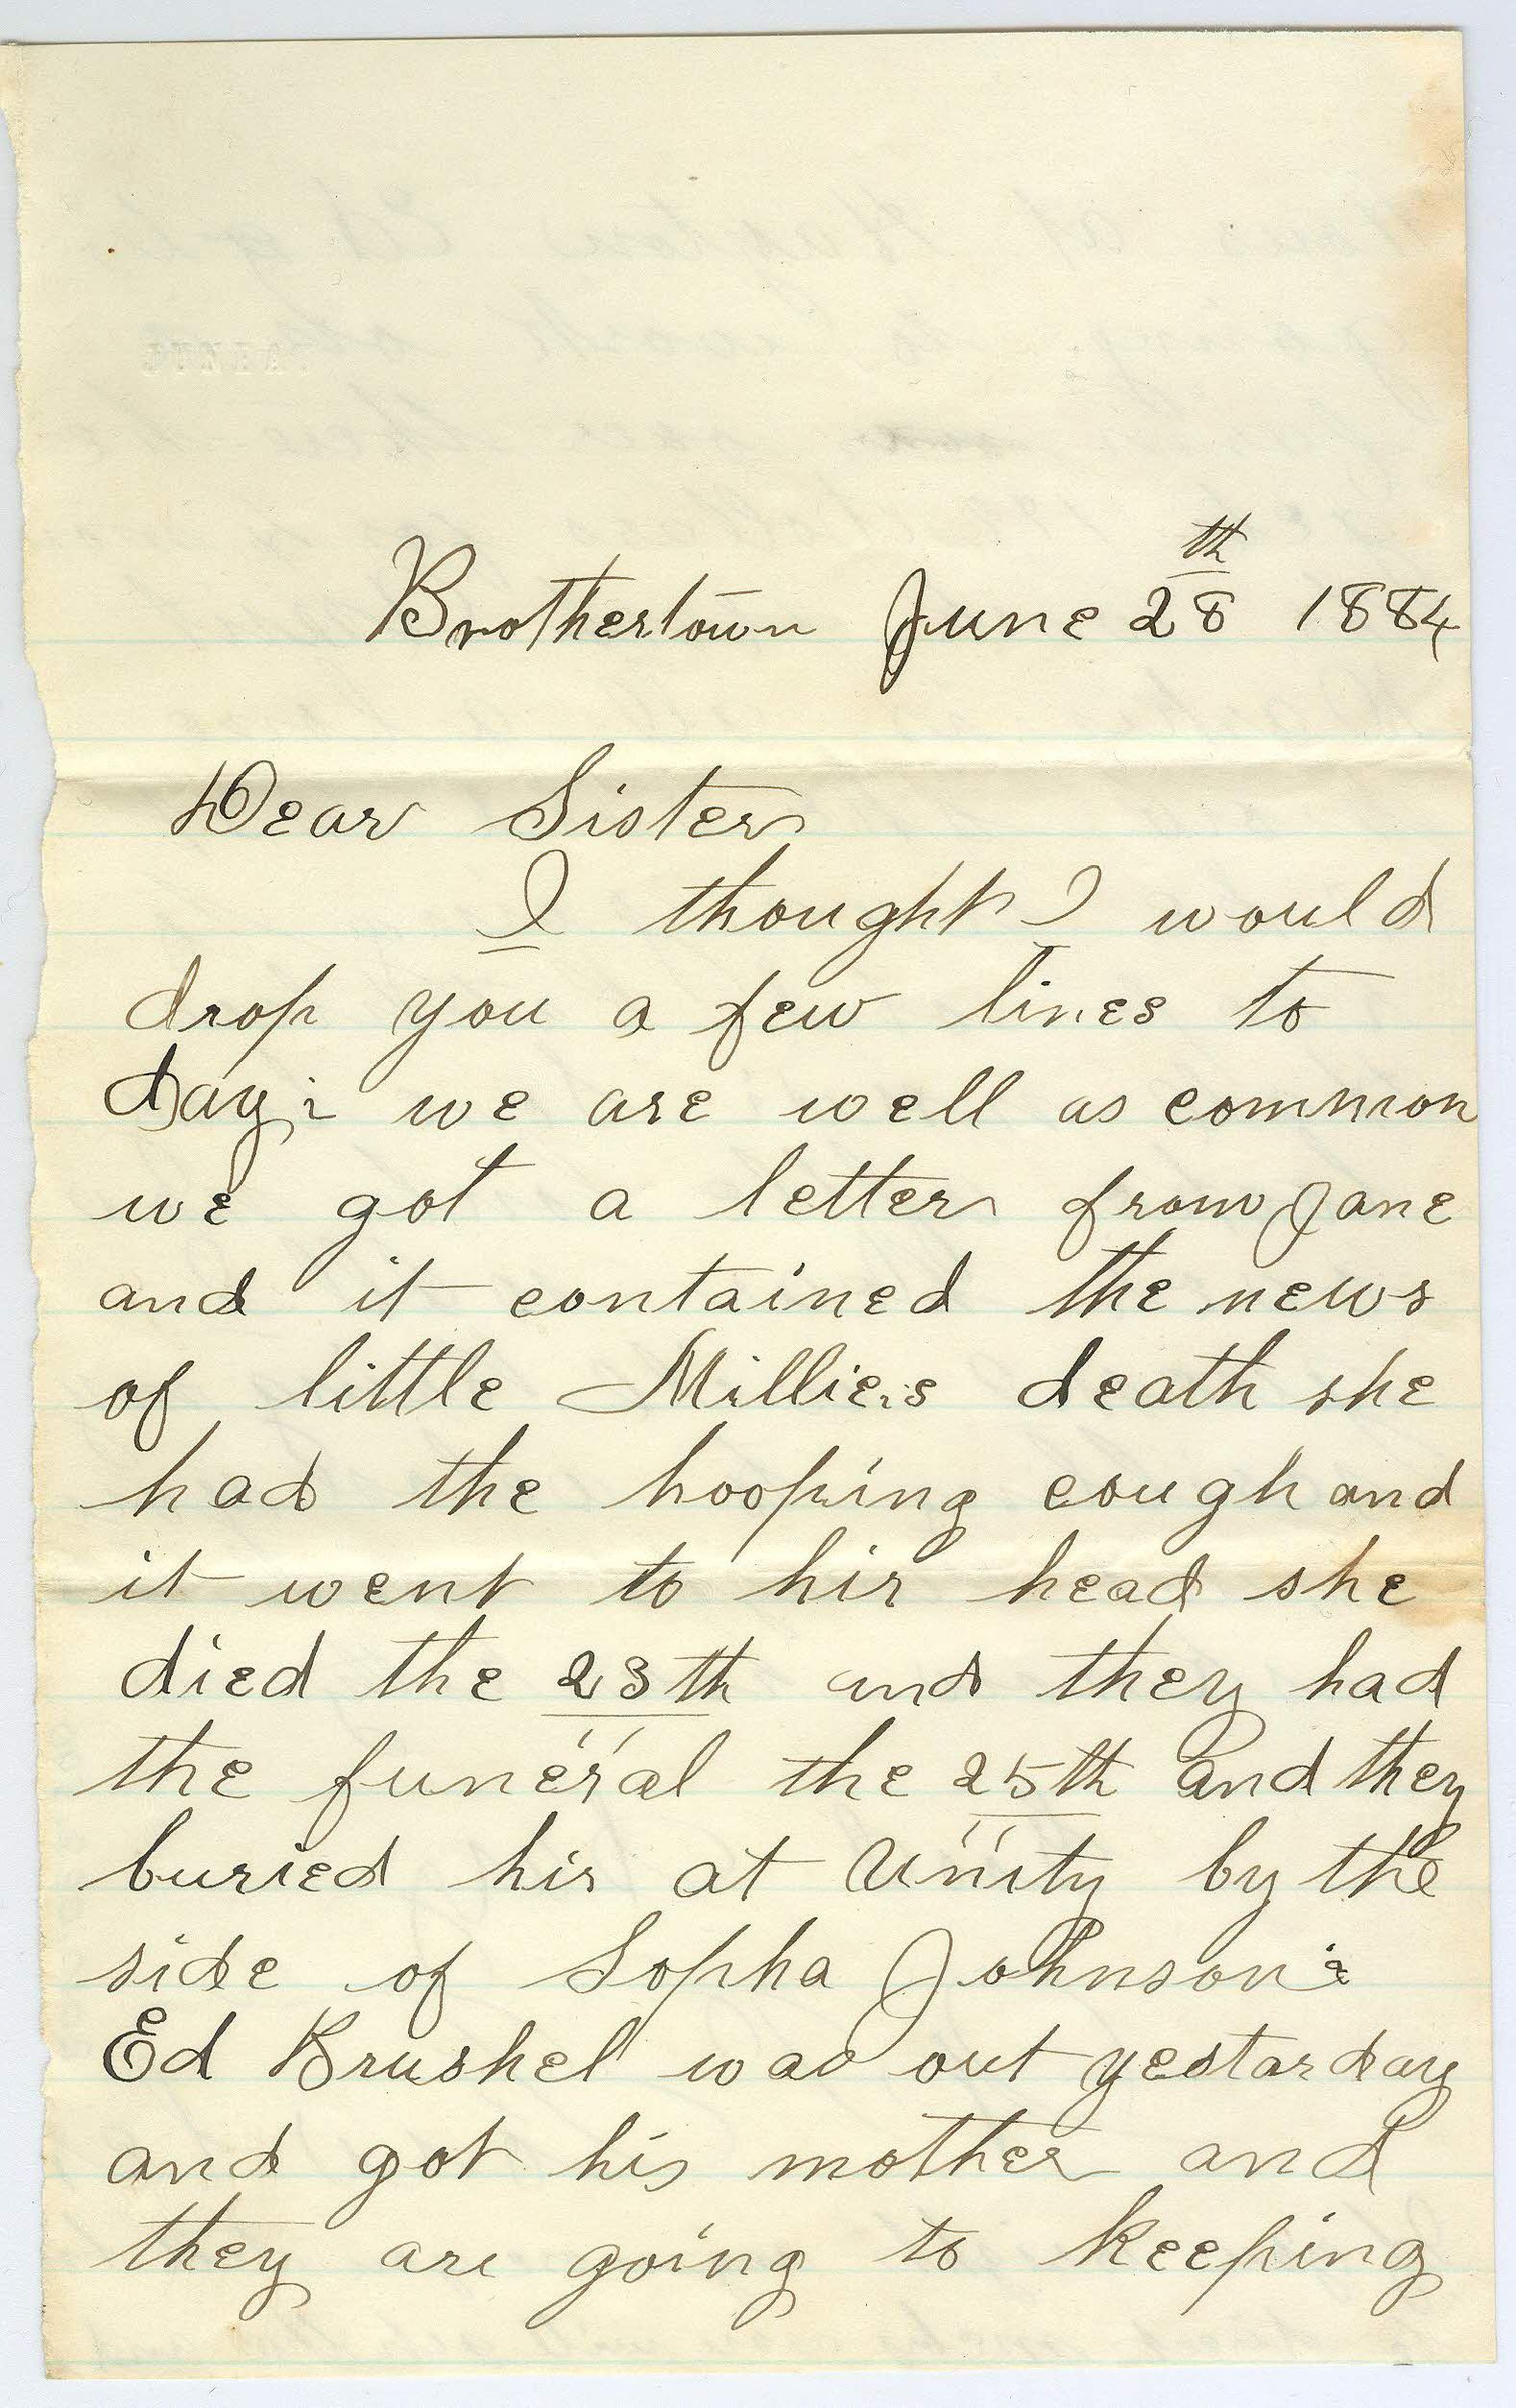 Brothertown June 28th 1884
Dear Sister
I thought I would
drop you a few lines to
day; we are well as common
we got a letter from Jane
and it contained the news
of little Millies death she
had the hooping cough and
it went to hir head she
died the 23th and they had
the funeral the 25th and they
buried hir at Unity by the
side of Sopha Johnson:
Ed Brushel was out yestarday
and got his mother and
they are going to keeping